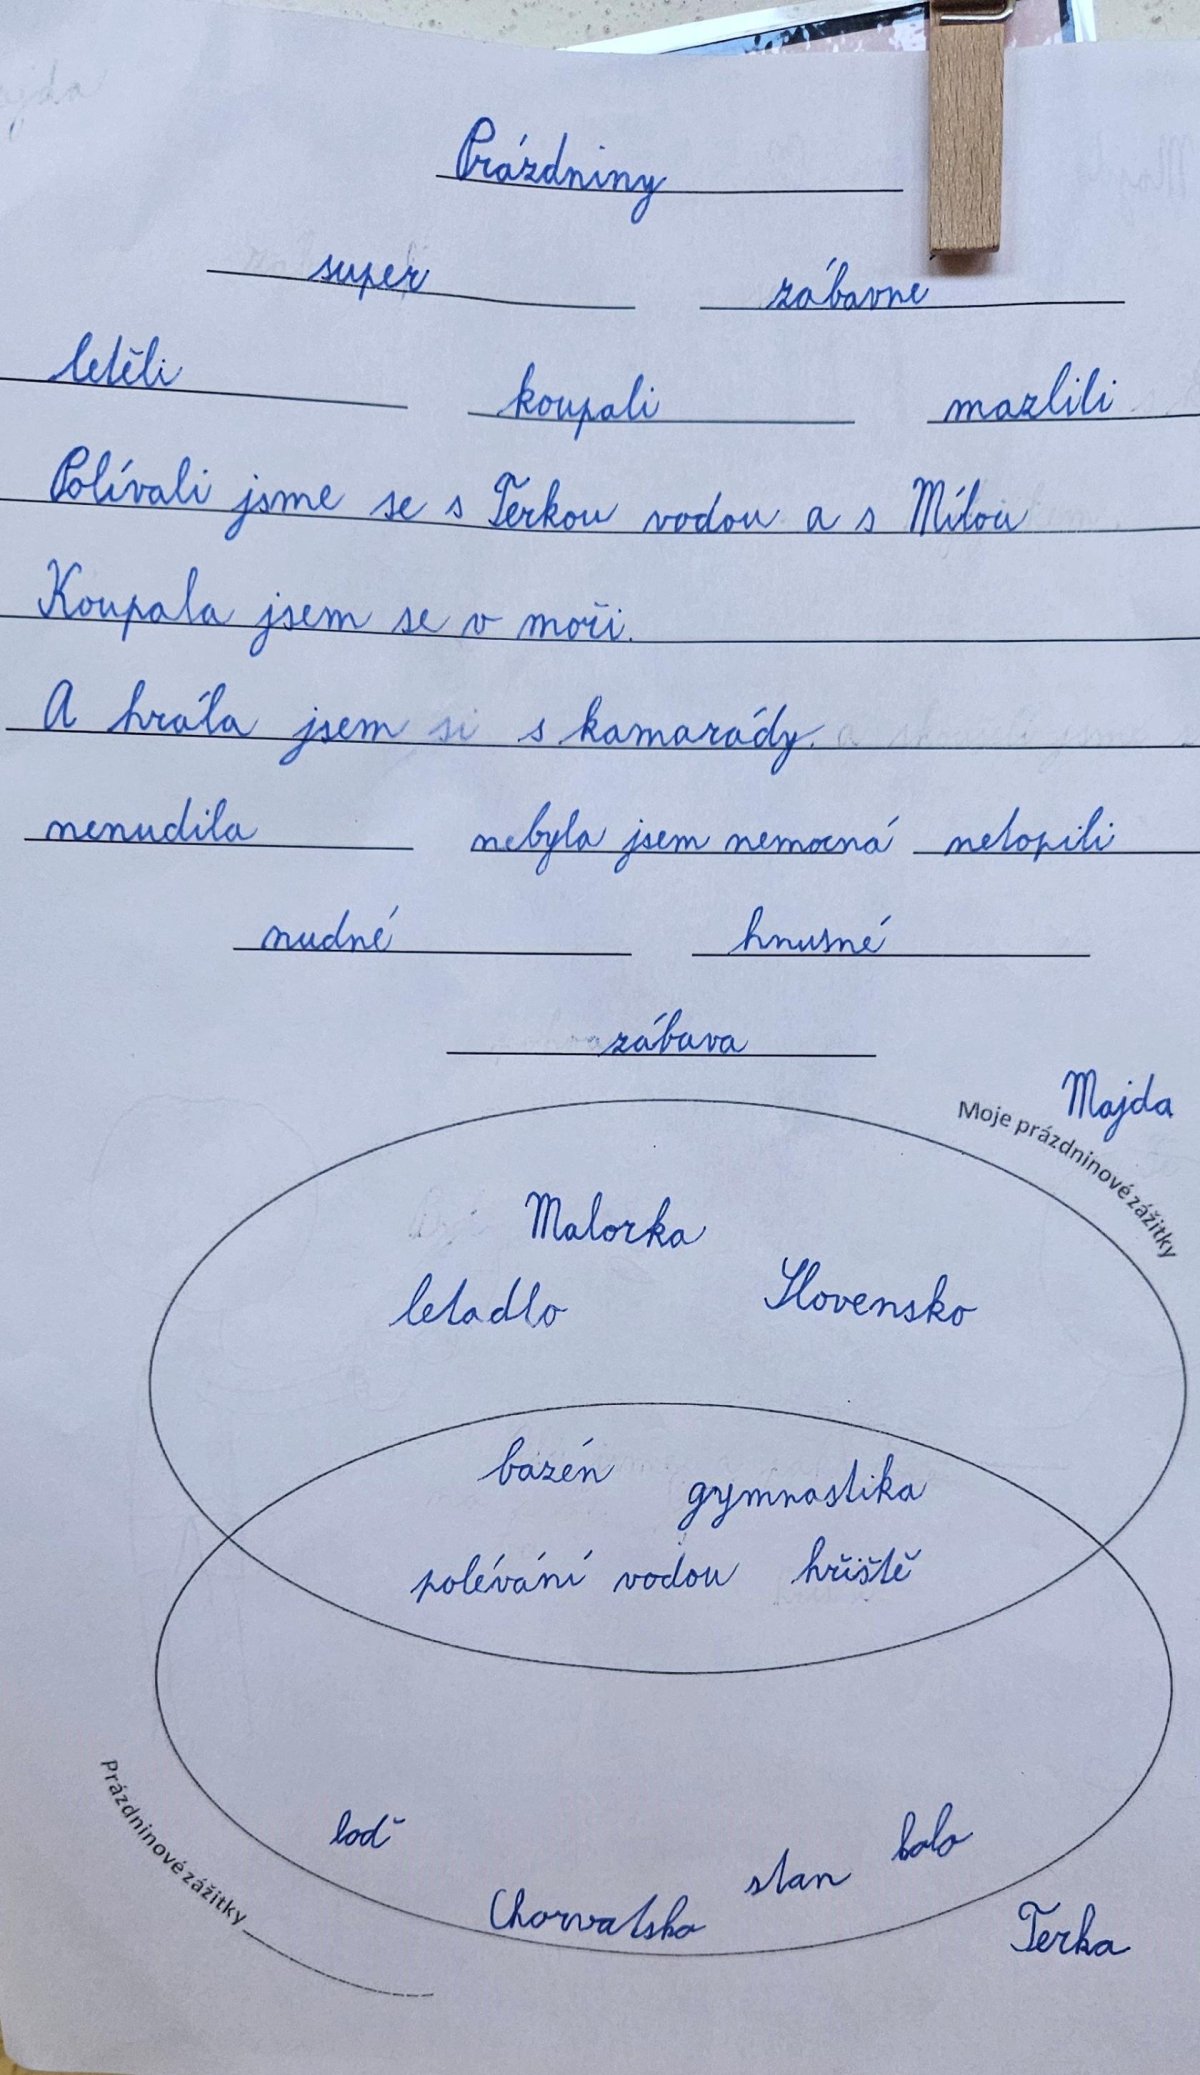 Prázdniny
super zábavné
letěli koupali mazlili
Polívali jsme se s Terkou vodou a s Mílou
Koupala jsem se v moři.
A hrála jsem si s kamarády.
nenudila nebyla jsem nemocná netopili
nudné hnusné
zábava
Majda
Moje prázdninové zážitky
Malorka
letadlo Slovensko
bazén gymnastika
polévání vodou hřiště
loď kolo
stan
Chorvatsko
Terka
Prázdninové zážitky